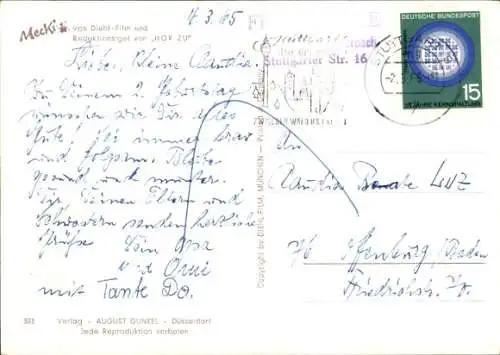 4.3.65
Mecki
von Diehl-Film und
Redaktionsigel von „HÖR ZU"
Liebe, kleine Claudia.
Zu Deinem 2. Geburtstag
wünschen wir Dir alles
Gute! Sei immer brav
und folgsam. Bleibe
gesund und munter.
Dir, Deinen Eltern und
Schwestern senden herzliche
Grüße Dein Opa
und Omi
mit Tante Do.
531 Verlag - AUGUST GUNKEL - Düsseldorf
Jede Reproduktion verboten
Copyright by DIEHL FILM, MÜNCHEN
Stuttgarter Str. 16
STUTTGART
ZWISCHEN WALD UND REBEN
DEUTSCHE BUNDESPOST
15
An
Claudia Beate Lenz
Offenburg / Baden
Friedrichstr.